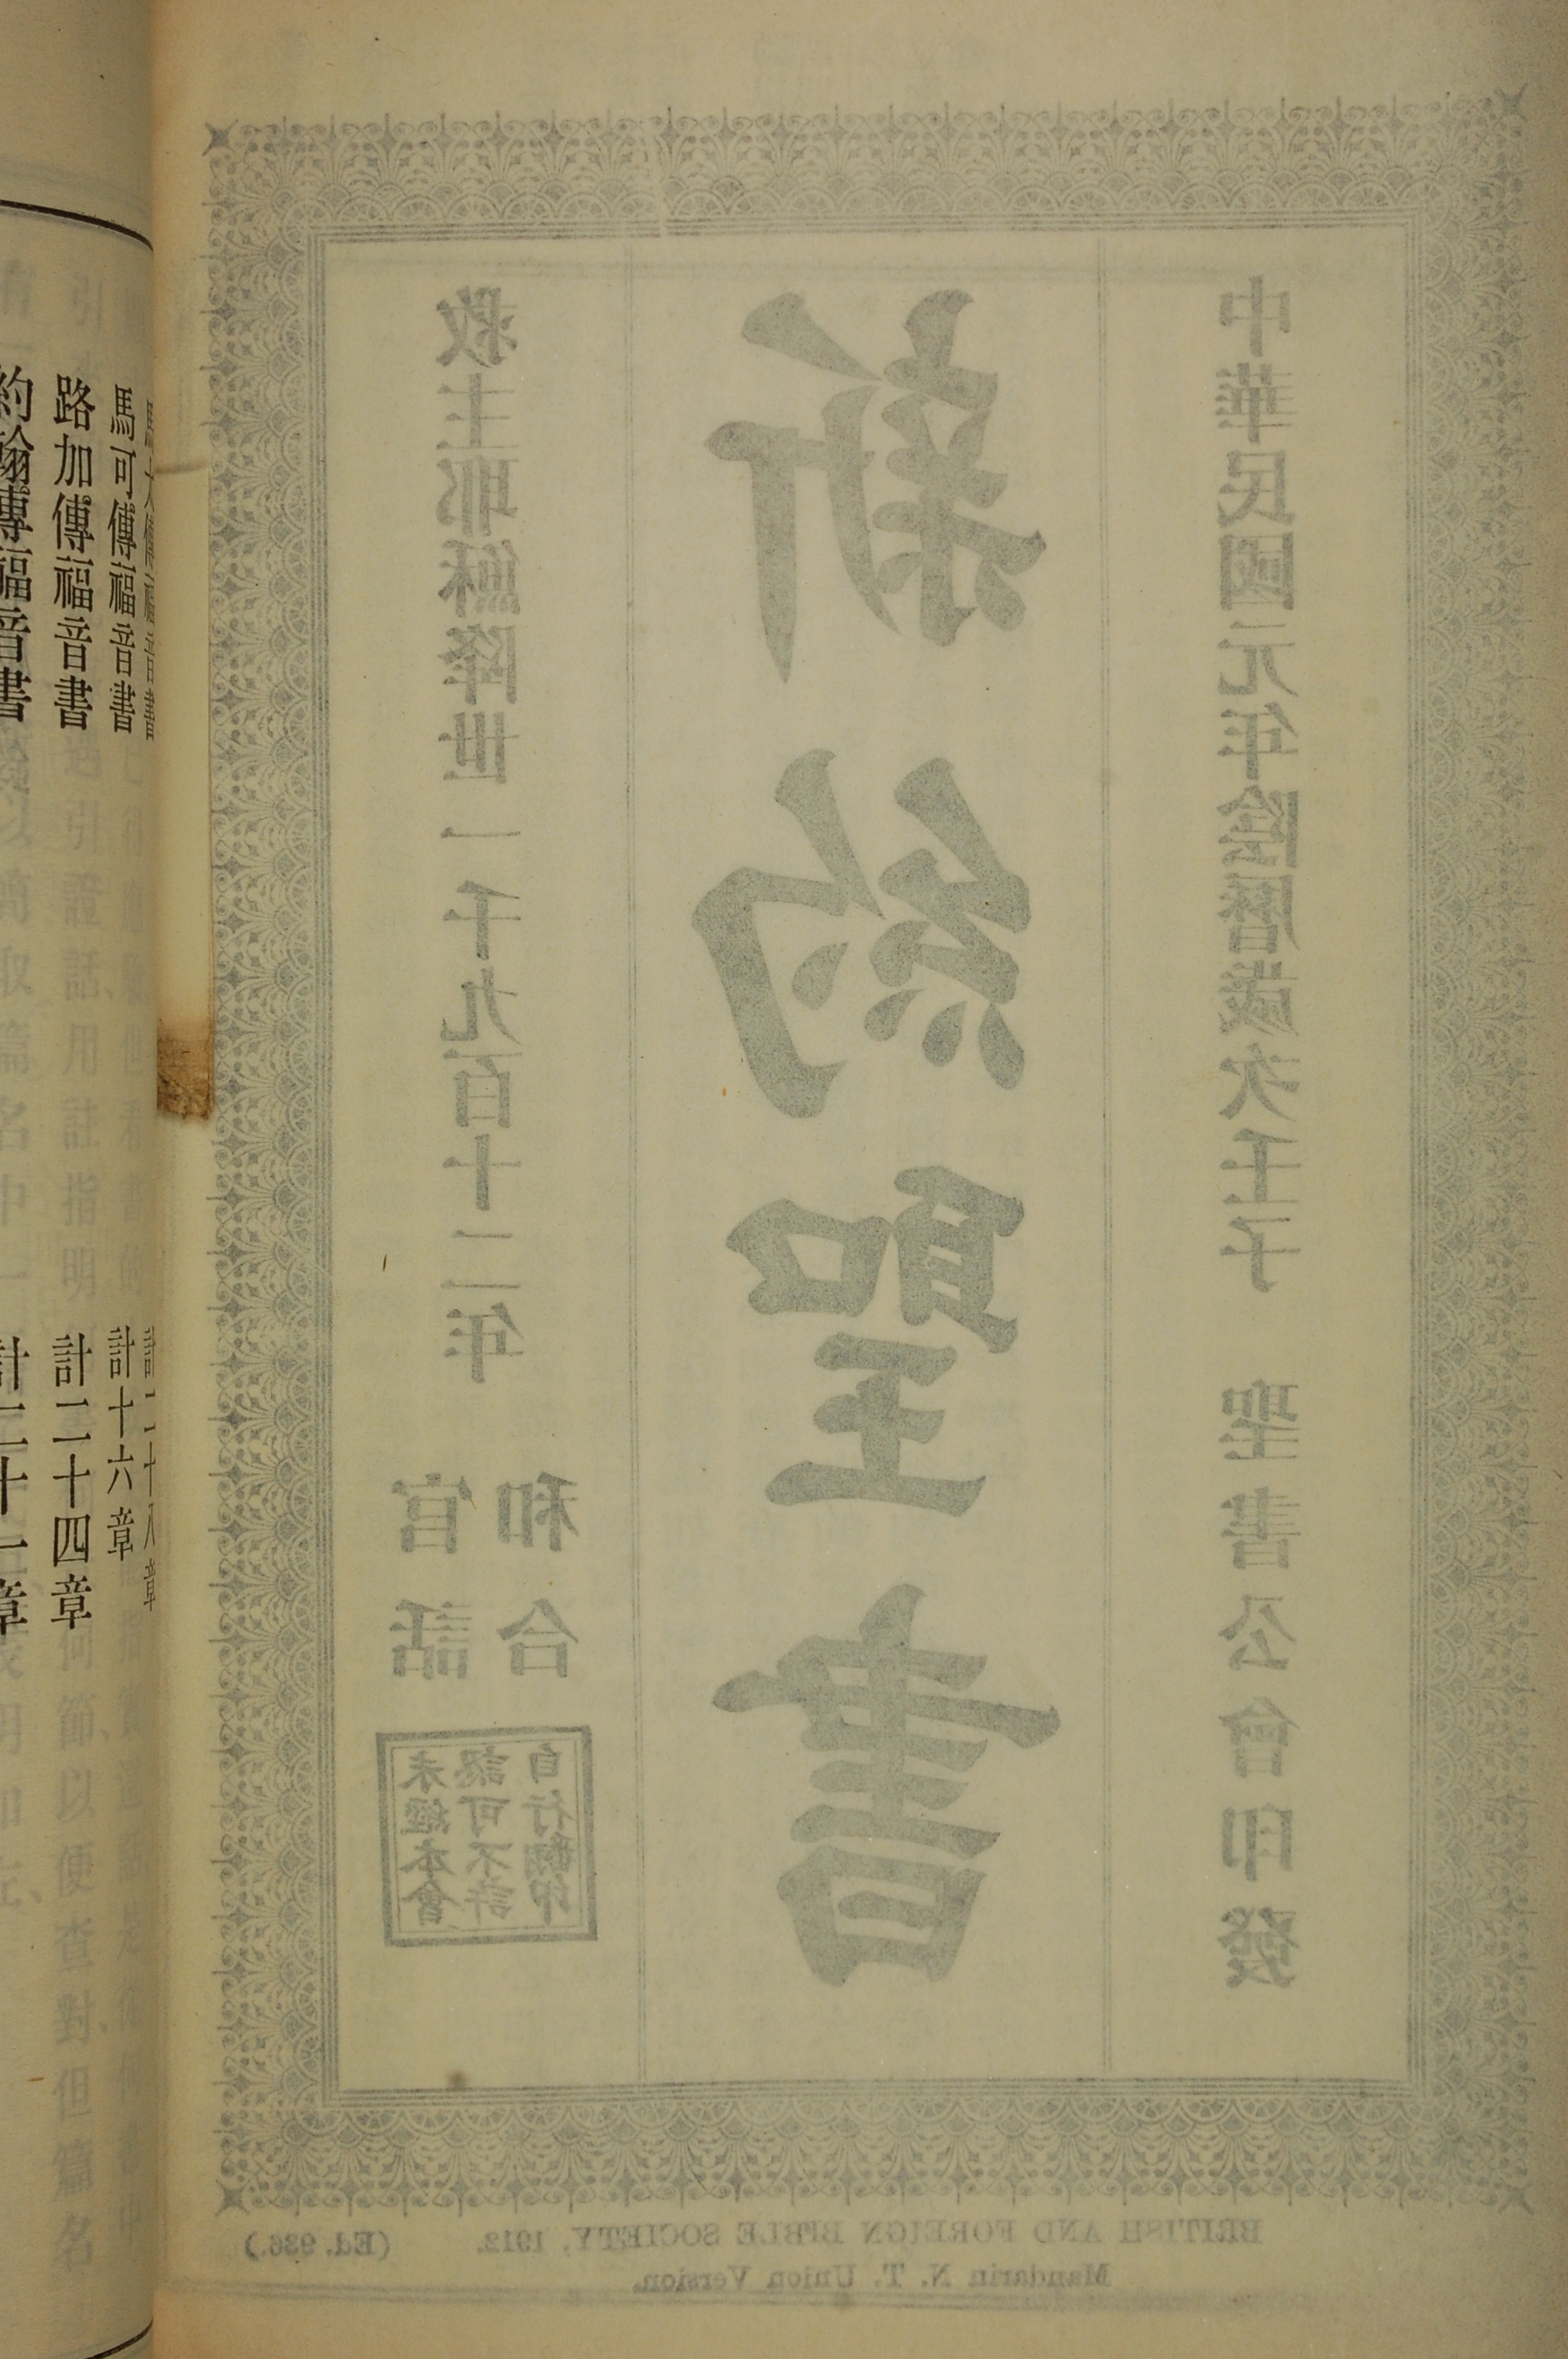 救主耶穌降世一千九百十二年
官話
和合
未經本會
認可不許
自行翻印
新約聖書
中華民國元年陰曆歲次壬子 聖書公會印發
BRITISH AND FOREIGN BIBLE SOCIETY, 1912. (Ed. 936.)
Mandarin N. T. Union Version.
馬太傳福音書 計二十八章
馬可傳福音書 計十六章
路加傳福音書 計二十四章
約翰傳福音書 計二十一章